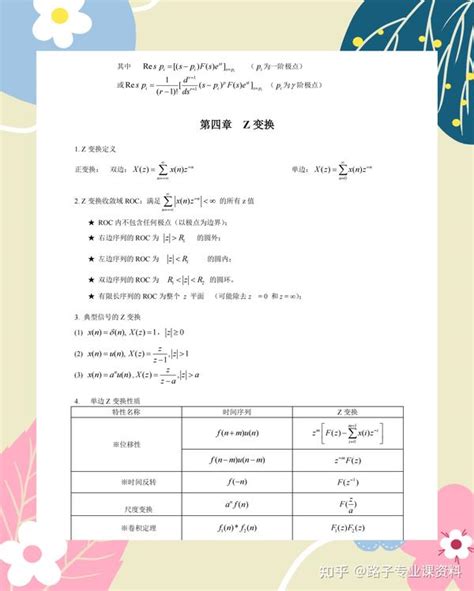 其中 Re s p_i = [(s - p_i)F(s)e^{st}]_{s=p_i} （p_i 为一阶极点）
或 Re s p_i = \frac{1}{(r-1)!}[\frac{d^{r-1}}{ds^{r-1}}(s-p_i)^r F(s)e^{st}]_{s=p_i} （p_i 为γ阶极点）
第四章 Z 变换
1. Z 变换定义
正变换： 双边：X(z) = \sum_{n=-∞}^{∞} x(n)z^{-n} 单边：X(z) = \sum_{n=0}^{∞} x(n)z^{-n}
2. Z 变换收敛域 ROC：满足 \sum_{n=-∞}^{∞} |x(n)z^{-n}| < ∞ 的所有 z 值
★ ROC 内不包含任何极点（以极点为边界）；
★ 右边序列的 ROC 为 |z| > R_1 的圆外；
★ 左边序列的 ROC 为 |z| < R_1 的圆内；
★ 双边序列的 ROC 为 R_1 < |z| < R_2 的圆环。
★ 有限长序列的 ROC 为整个 z 平面 （可能除去 z = 0 和 z = ∞）；
3. 典型信号的 Z 变换
(1) x(n) = δ(n), X(z) = 1，|z| ≥ 0
(2) x(n) = u(n), X(z) = \frac{z}{z-1}, |z| > 1
(3) x(n) = a^n u(n), X(z) = \frac{z}{z-a}, |z| > a
4. 单边 Z 变换性质
特性名称 时间序列 Z 变换
※位移性 f(n+m)u(n) z^m[F(z) - \sum_{i=0}^{m-1} x(i)z^{-i}]
f(n-m)u(n-m) z^{-m}F(z)
※时间反转 f(-n) F(z^{-1})
尺度变换 a^n f(n) F(\frac{z}{a})
※卷积定理 f_1(n)* f_2(n) F_1(z)F_2(z)
知乎 @路子专业课资料